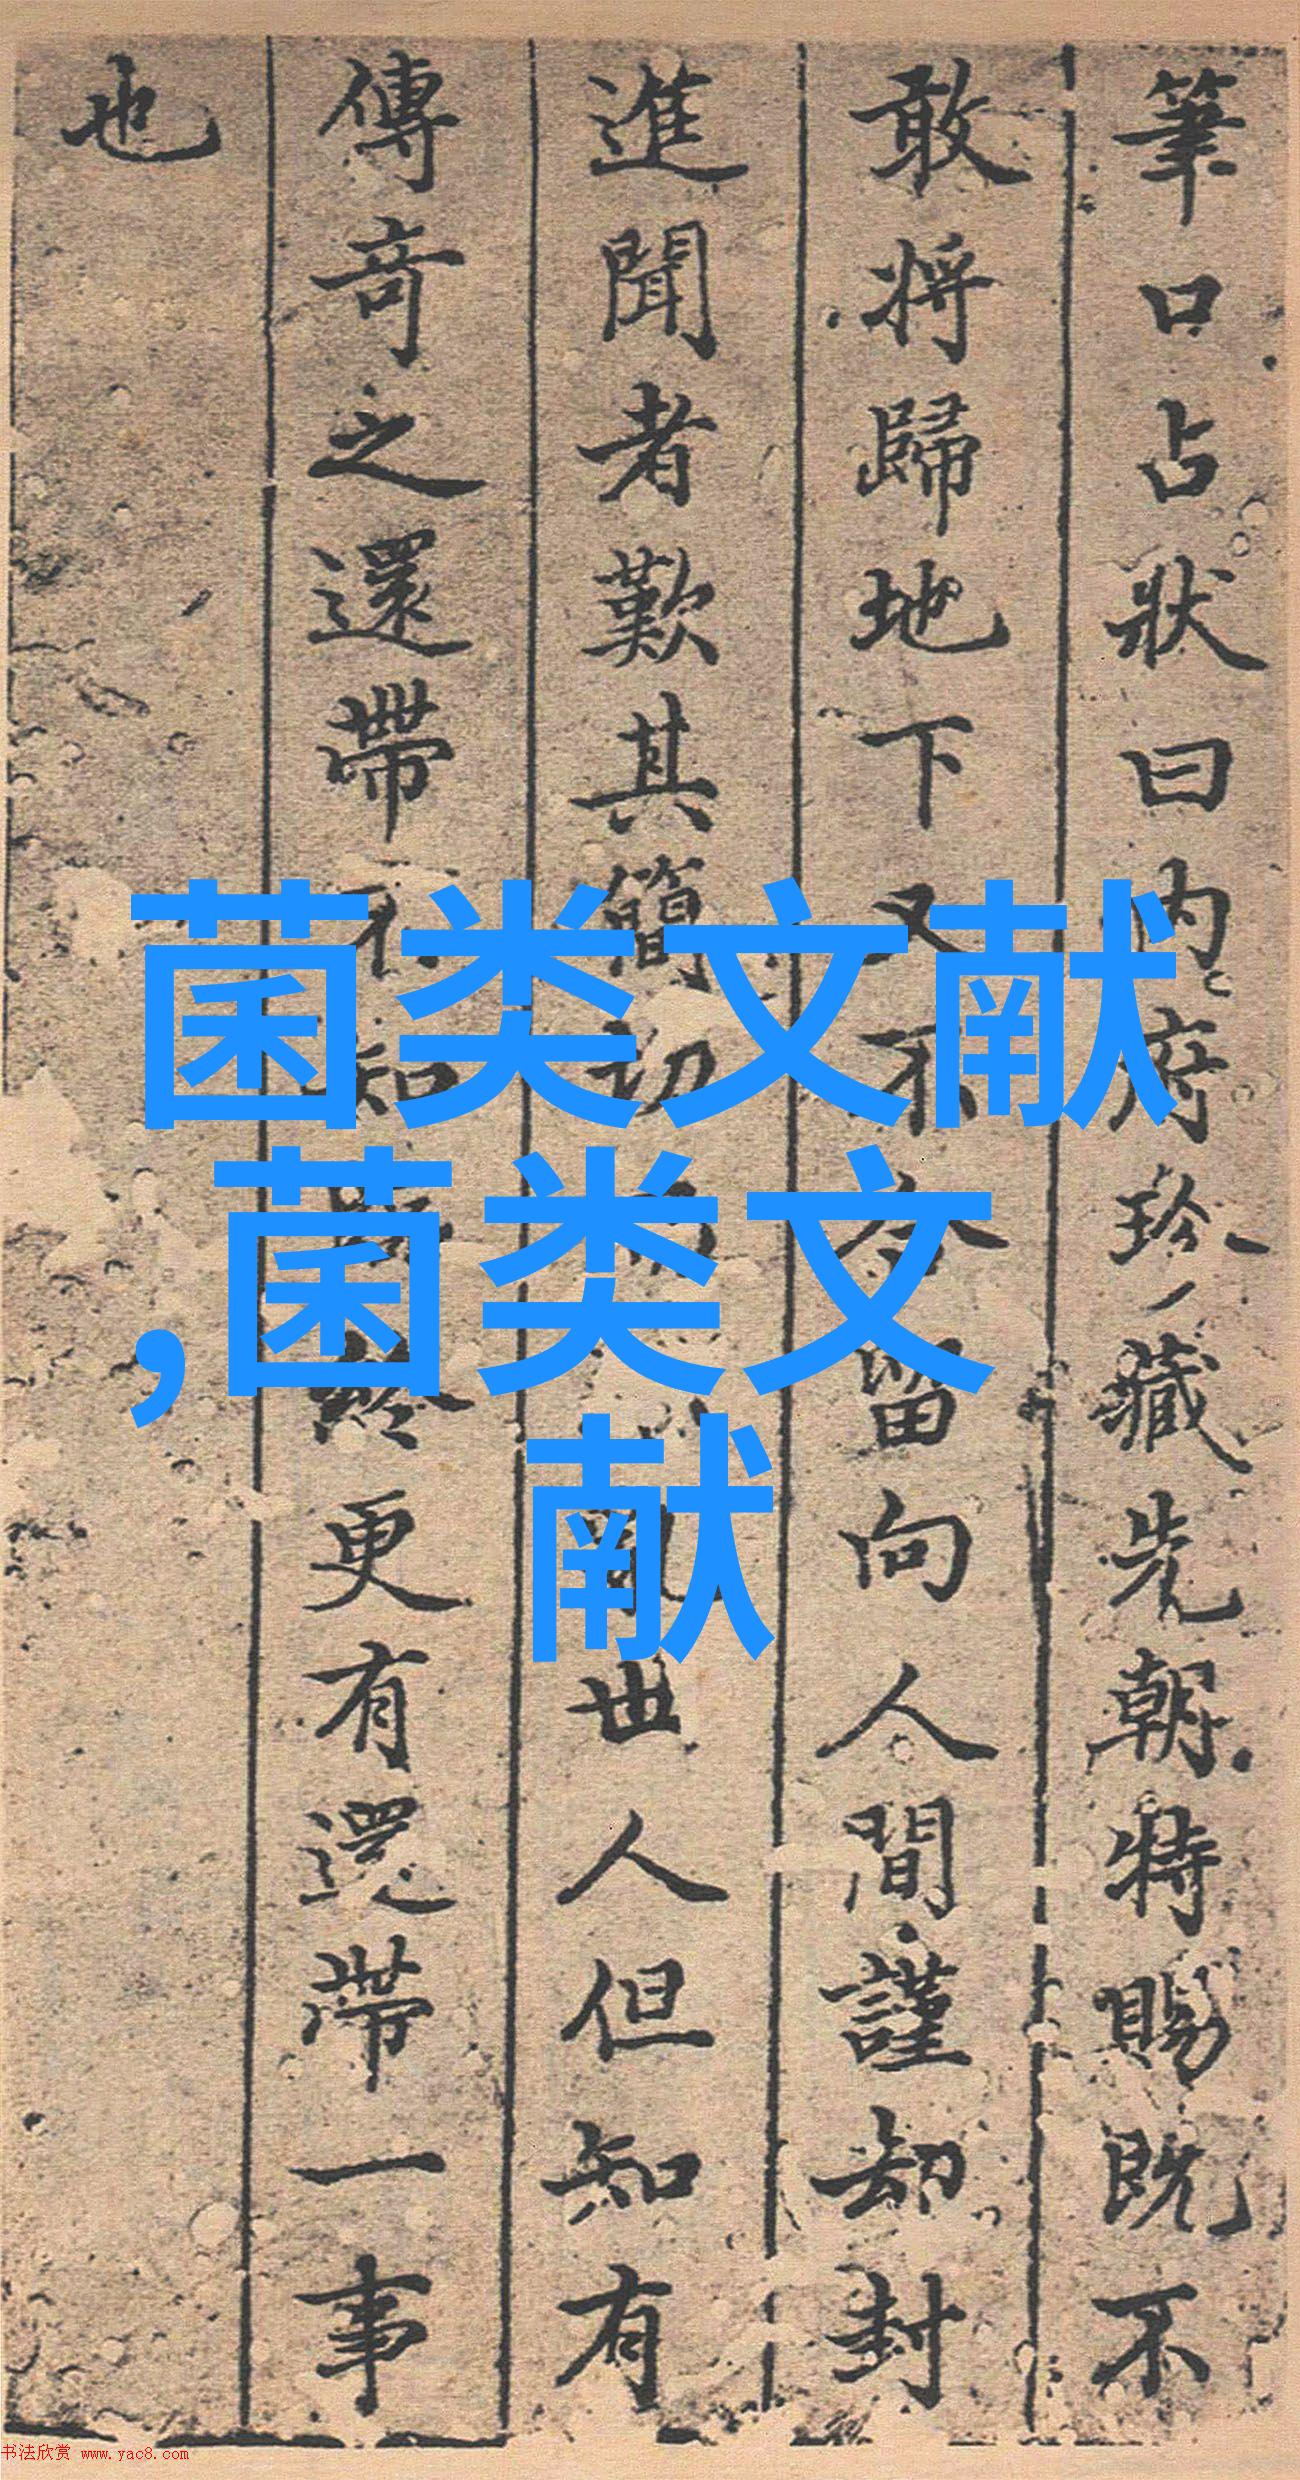 筆口占狀曰内府珍藏先朝特賜既不
敢將歸地下又不合留向人間謹却封
進聞者歎其簡切
世人但知有
傳奇之還帶
知
終更有還帶一事
也
菌类文献
,菌类文
献
书法欣赏 www.yac8.com